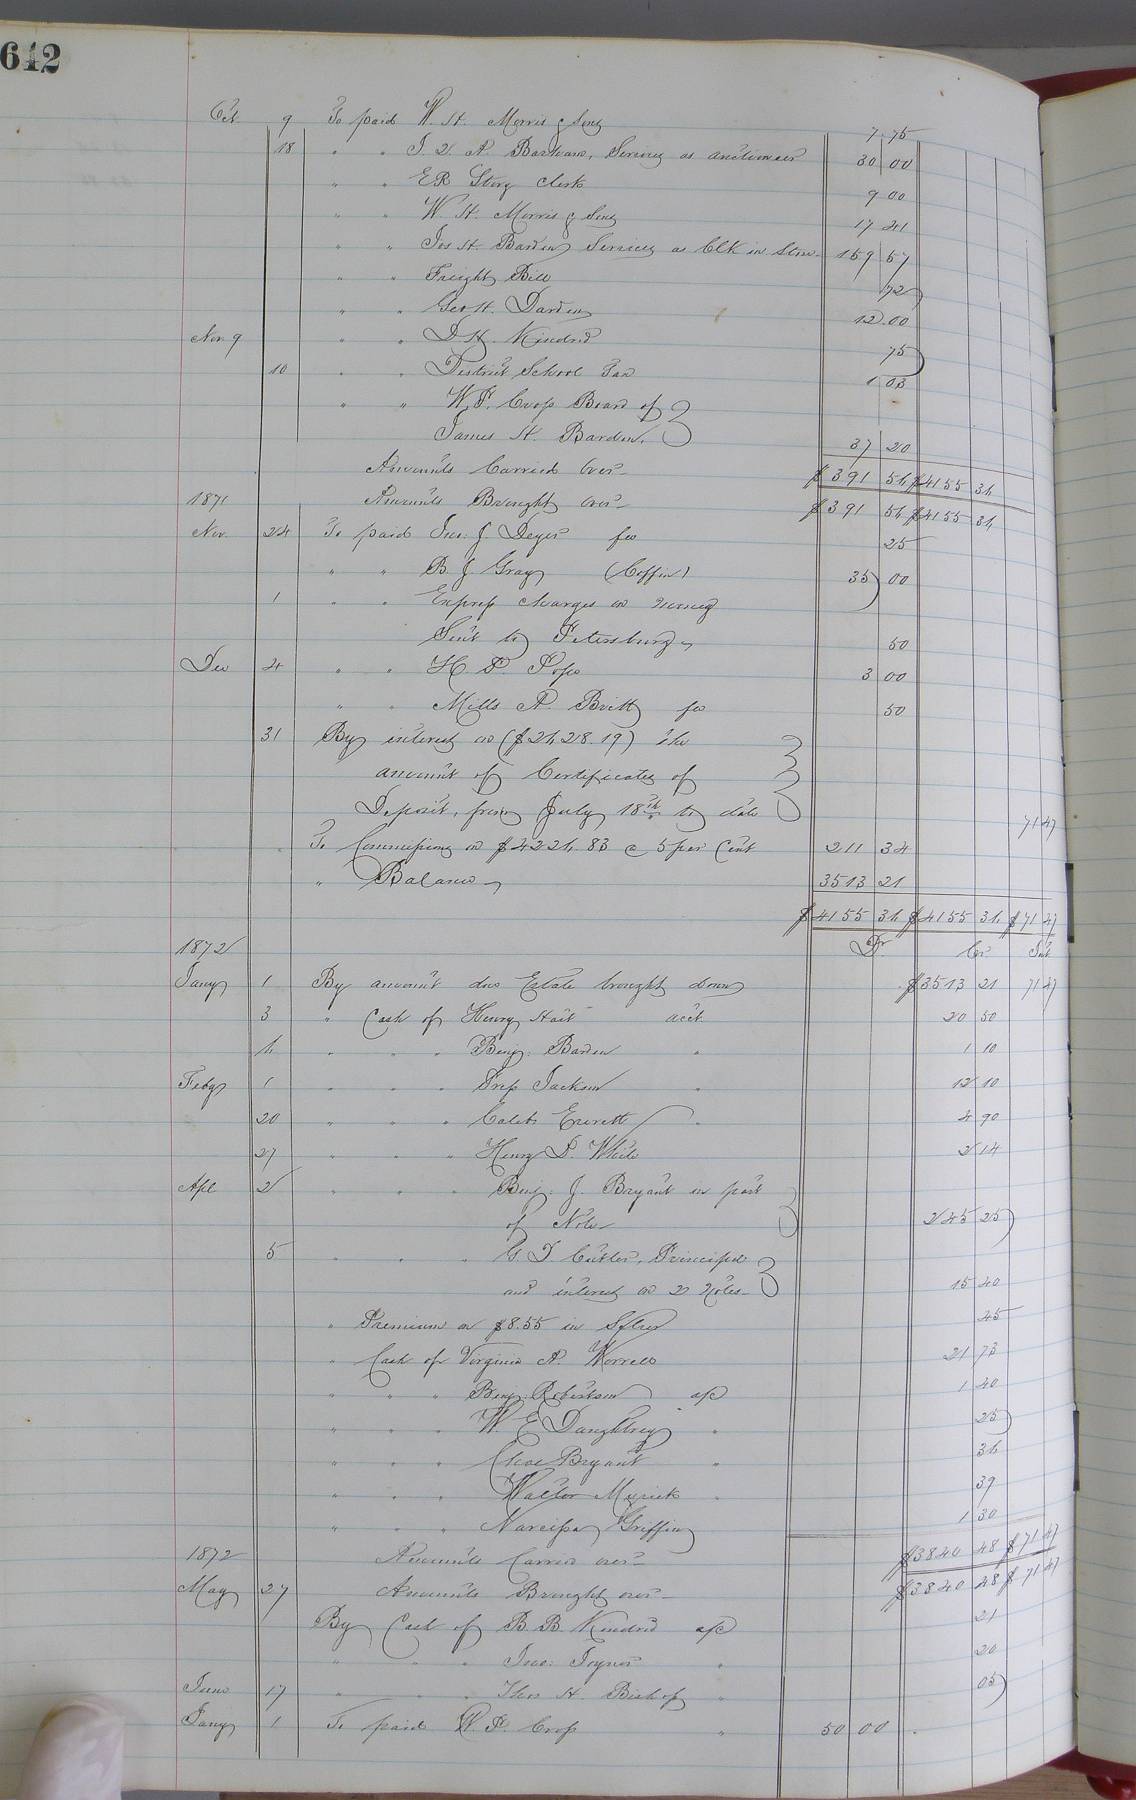 612
Oct 9 To paid W. H. Morris & Sons 7 75
18 " " J. D. A. Services as auctioneer 30 00
" " E R Story Clerk 9 00
" " W. H. Morris & Sons 17 41
" " Jas H. Barden Services as Clk in Store 159 57
" " Freight Bill 72
" " Geo H. Darden 12.00
Nov. 9 " " D H. Kindred 75
10 " " District School Tax 1 03
" " W. P. Crop Board of
James H. Barden. 37 20
Amounts Carried Over $391 56 $4155 36
1871 Amounts Brought over $391 56 $4155 36
Nov. 24 To paid Jno: J Deyer fee 25
" " B. J Gray (Coffin) 35 00
1 " " Express charges on money
Sent to Petersburg 50
Dec 4 " " H. P. Pope 3 00
" " Mills A. Britt fee 50
31 By interest on ($2618.19) the
amount of Certificates of
Deposit, from July 18th to date 71 47
To Commissions on $4226.83 @ 5 per Cent 211 34
" Balance 3513 21
$4155 36 $4155 36 $71 47
1872 Dr Cr Int
Jany 1 By amount due Estate brought down $3513 21 71 47
3 " Cash of Henry Hart acct. 20 50
6 " " " Benj: Barden " 1 10
Feby 1 " " " Jackson " 12 10
20 " " " Caleb Everett " 4 90
27 " " " Henry D. White 2 14
Apl 2 " " " Benj: J. Bryant in part
of Note 245 25
5 " " " G. D. Cutler, Principal
and interest on 2 Notes 15 40
" Premium on $8.55 in Silver 45
" Cash of Virginia A. Worrell 21 73
" " " Benj: Robertson a/c 1 40
" " " W. E Daughtrey " 25
" " " Chas Bryant " 36
" " " Walter Myrick " 39
" " " Narcissa Griffin 1 30
1872 Amounts Carried over $3840 48 $71 47
May 27 Amounts Brought over $3840 48 $71 47
By Cash of B. B. Kindred a/c 21
" " " Jno: Joyner " 20
June 17 " " " Thos H. Bishop " 05
Jany 1 To paid W. P. Crop " 50 00